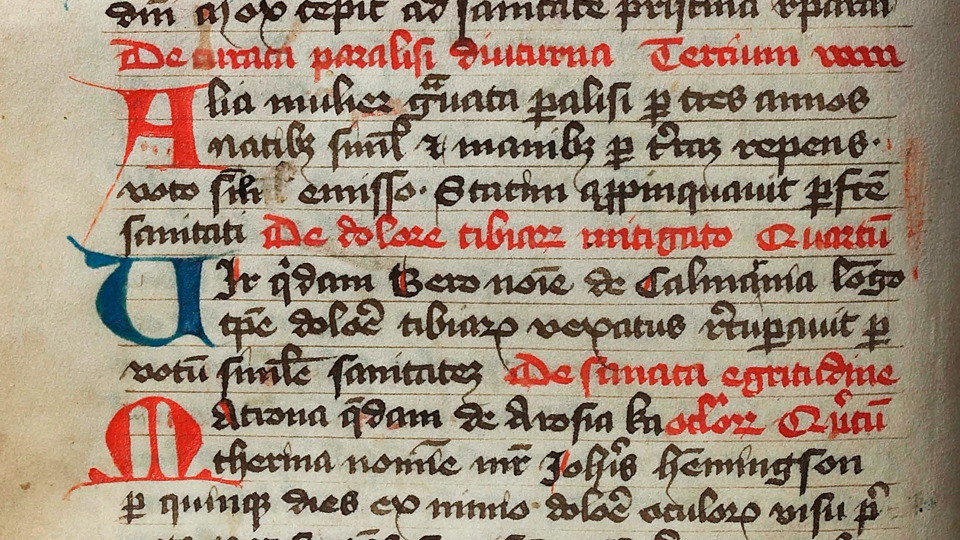 cepit ad sanitatē pristinā rparari
De curata paralisi diuturna Tercium
Alia mulier g̃uata palisi p tres annos
natibꝫ simlʼ ⁊ manibꝫ p t̃raꝫ repens·
voto sili emisso· Statim appinquauit pfcē
sanitati De dolore tibiaꝝ mitigato Quartū
Uir qͥdam Bero noīe de Calmarnia lōgo
tpē dolorē tibiaꝝ vexatus rc̃upauit p
votū similē sanitateꝫ De sanata egritudine
Matrona q̄dam de Arosia ka ocloꝝ Qͥntū
therina nomīe mr̄ Johīs hēmingson
p quinqꝫ dies ex nimio dolorē oculoꝝ visu pͥ